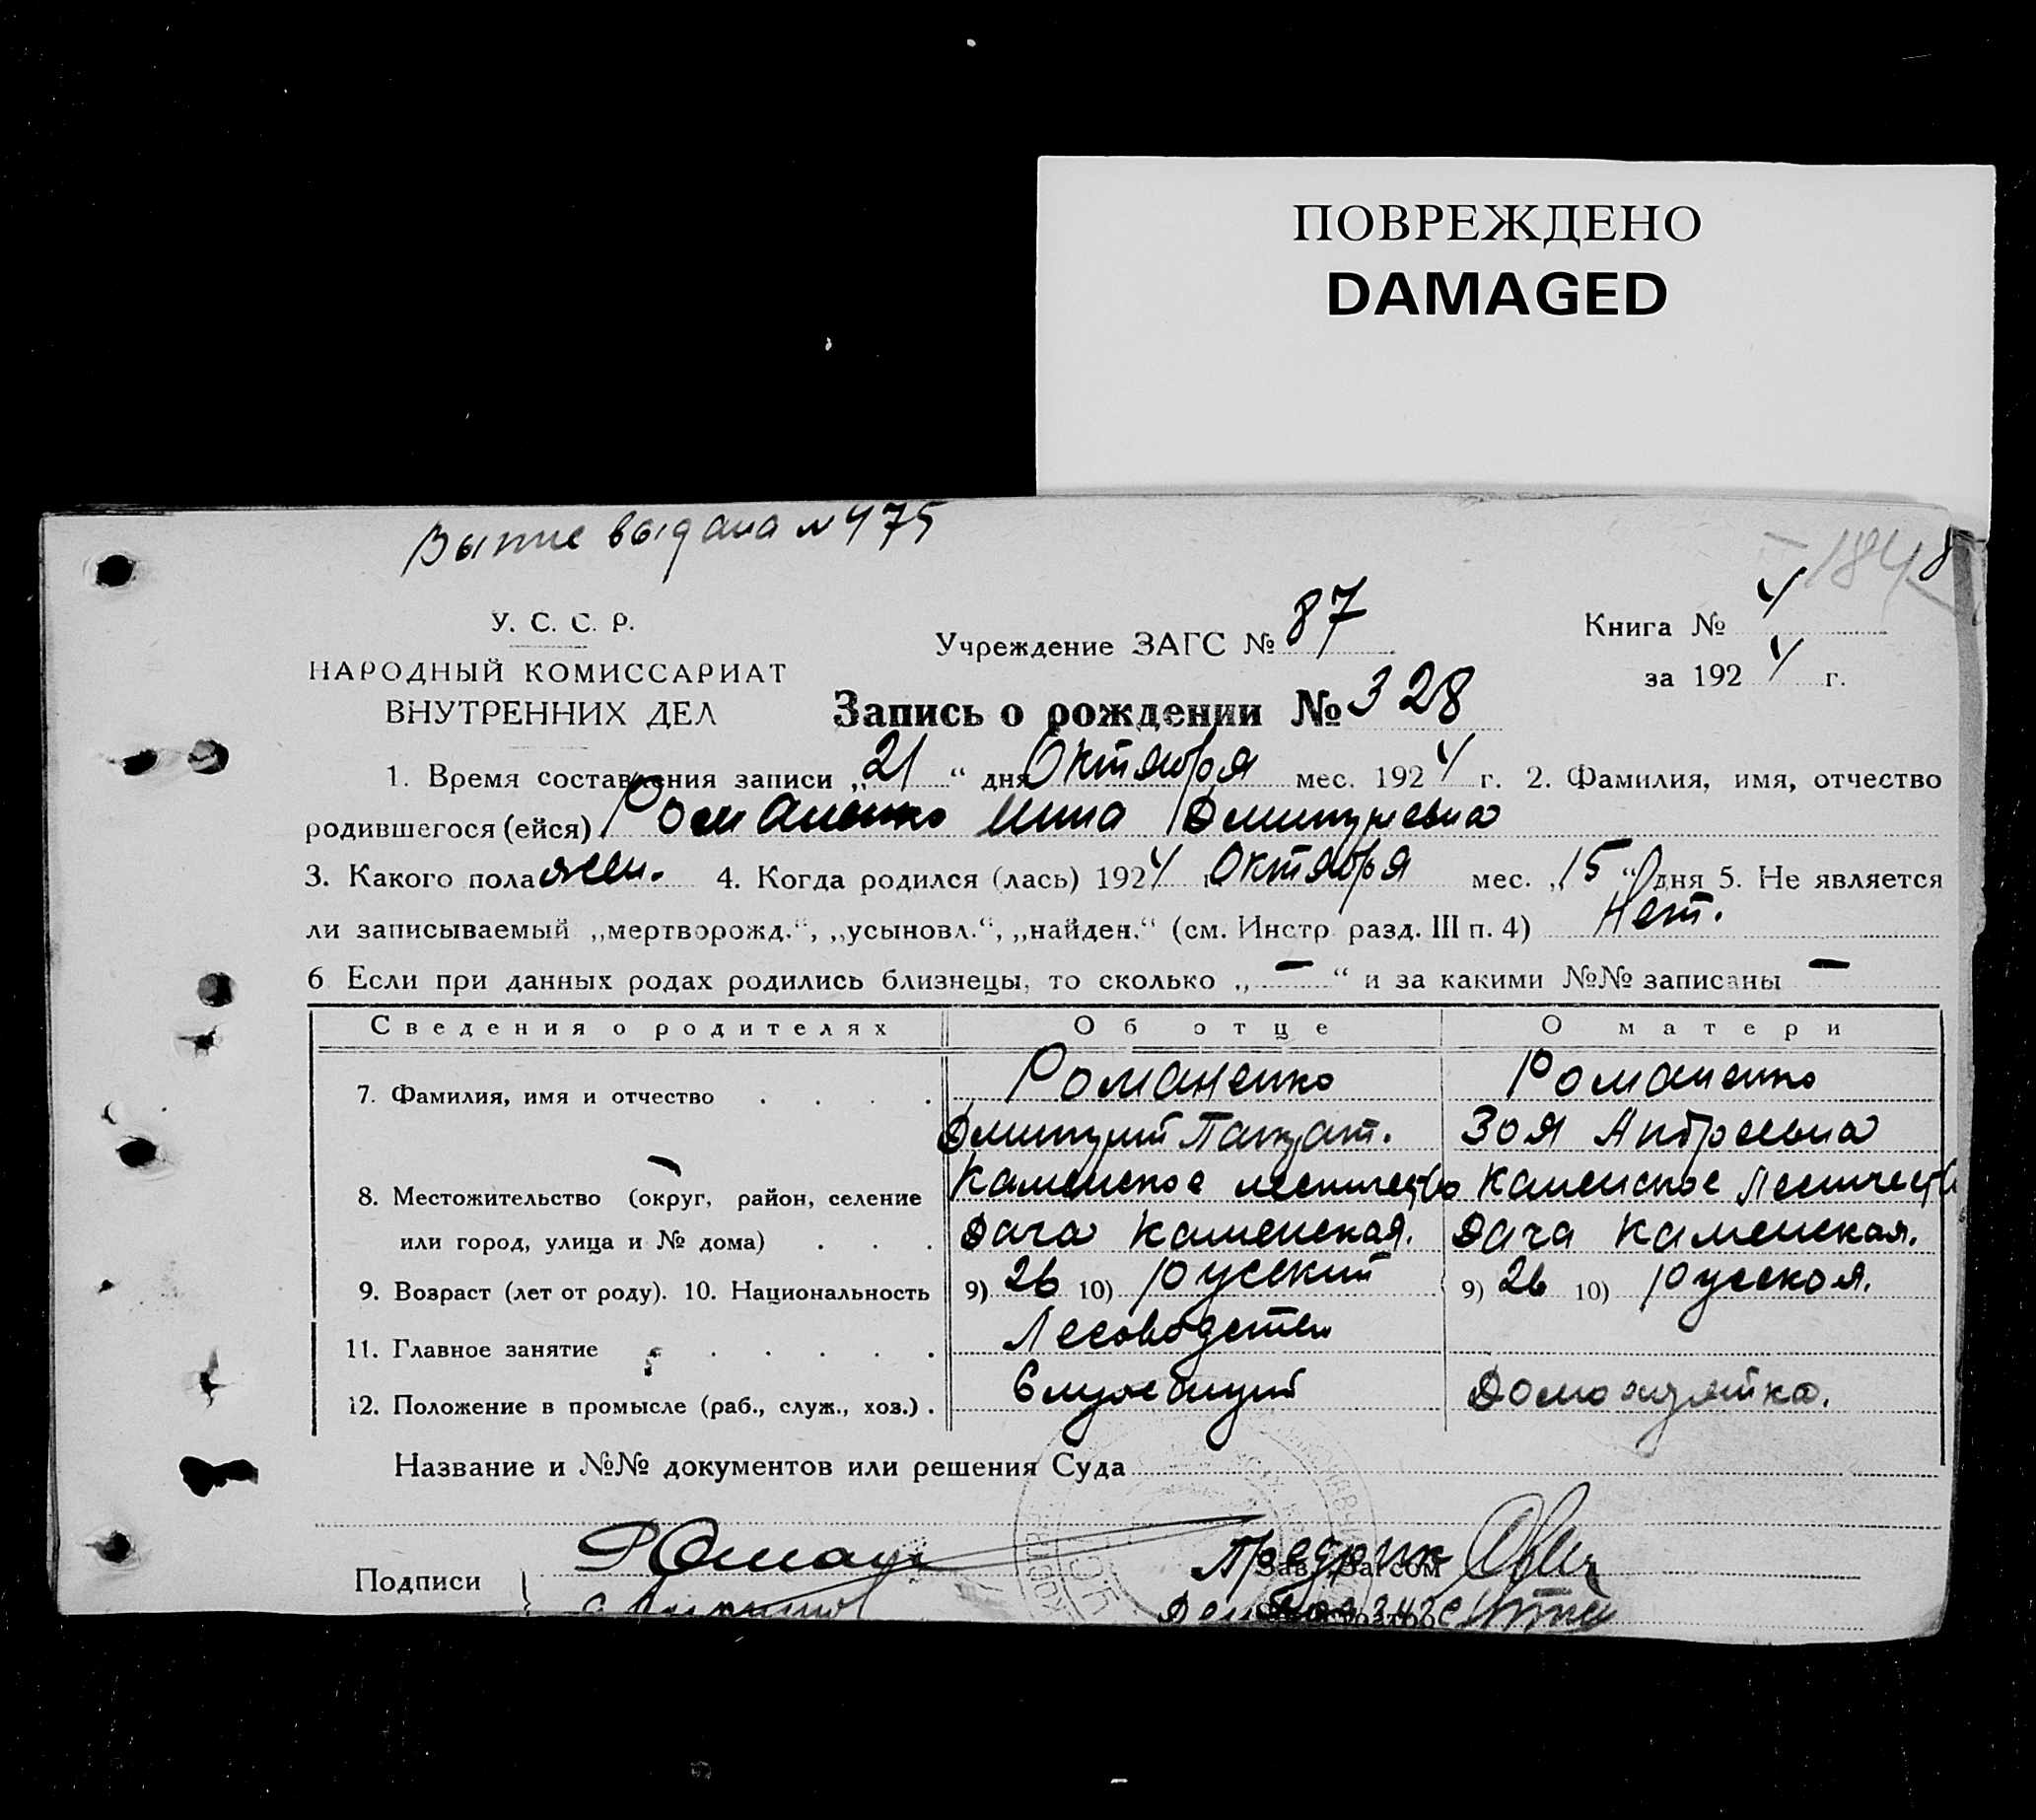 ПОВРЕЖДЕНО
DAMAGED
выдана № 475
184
8
У. С. С. Р.
НАРОДНЫЙ КОМИССАРИАТ
ВНУТРЕННИХ ДЕЛ
Учреждение ЗАГС № 87
Книга № 4
за 1924 г.
Запись о рождении № 328
1. Время составления записи „21“ дня Октября мес. 1924 г. 2. Фамилия, имя, отчество
родившегося (ейся) Романенко Нина Дмитриевна
3. Какого пола жен. 4. Когда родился (лась) 1924 Октября мес. „15“ дня 5. Не является
ли записываемый „мертворожд.“, „усыновл.“, „найден.“ (см. Инстр разд. III п. 4) Нет.
6 Если при данных родах родились близнецы, то сколько „—“ и за какими №№ записаны —
Сведения о родителях Об отце О матери
7. Фамилия, имя и отчество . . . . Романенко Романенко
Дмитрий Зоя Андреевна
8. Местожительство (округ, район, селение Каменское лесничество Каменское Лесничеств
или город, улица и № дома) . . . Дача Каменская. Дача Каменская.
9. Возраст (лет от роду). 10. Национальность 9) 26 10) русский 9) 26 10) русская.
11. Главное занятие . . . . . Лесоводство
12. Положение в промысле (раб., служ., хоз.) . Служащий Домохозяйка.
Название и №№ документов или решения Суда
Подписи
Зав. Загсом